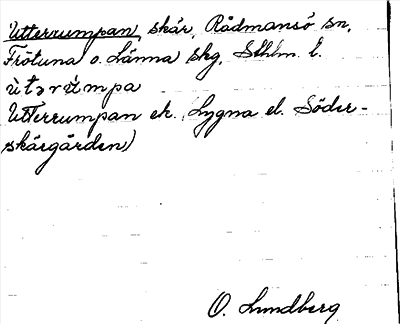 Utterrumpan, skär, Rådmansö sn,
Frötuna o. Länna skg, Sthlm. l.
ùtərúmpa
Utterrumpan ek. (Lygna el. Söder-
skärgården)
O. Lundberg